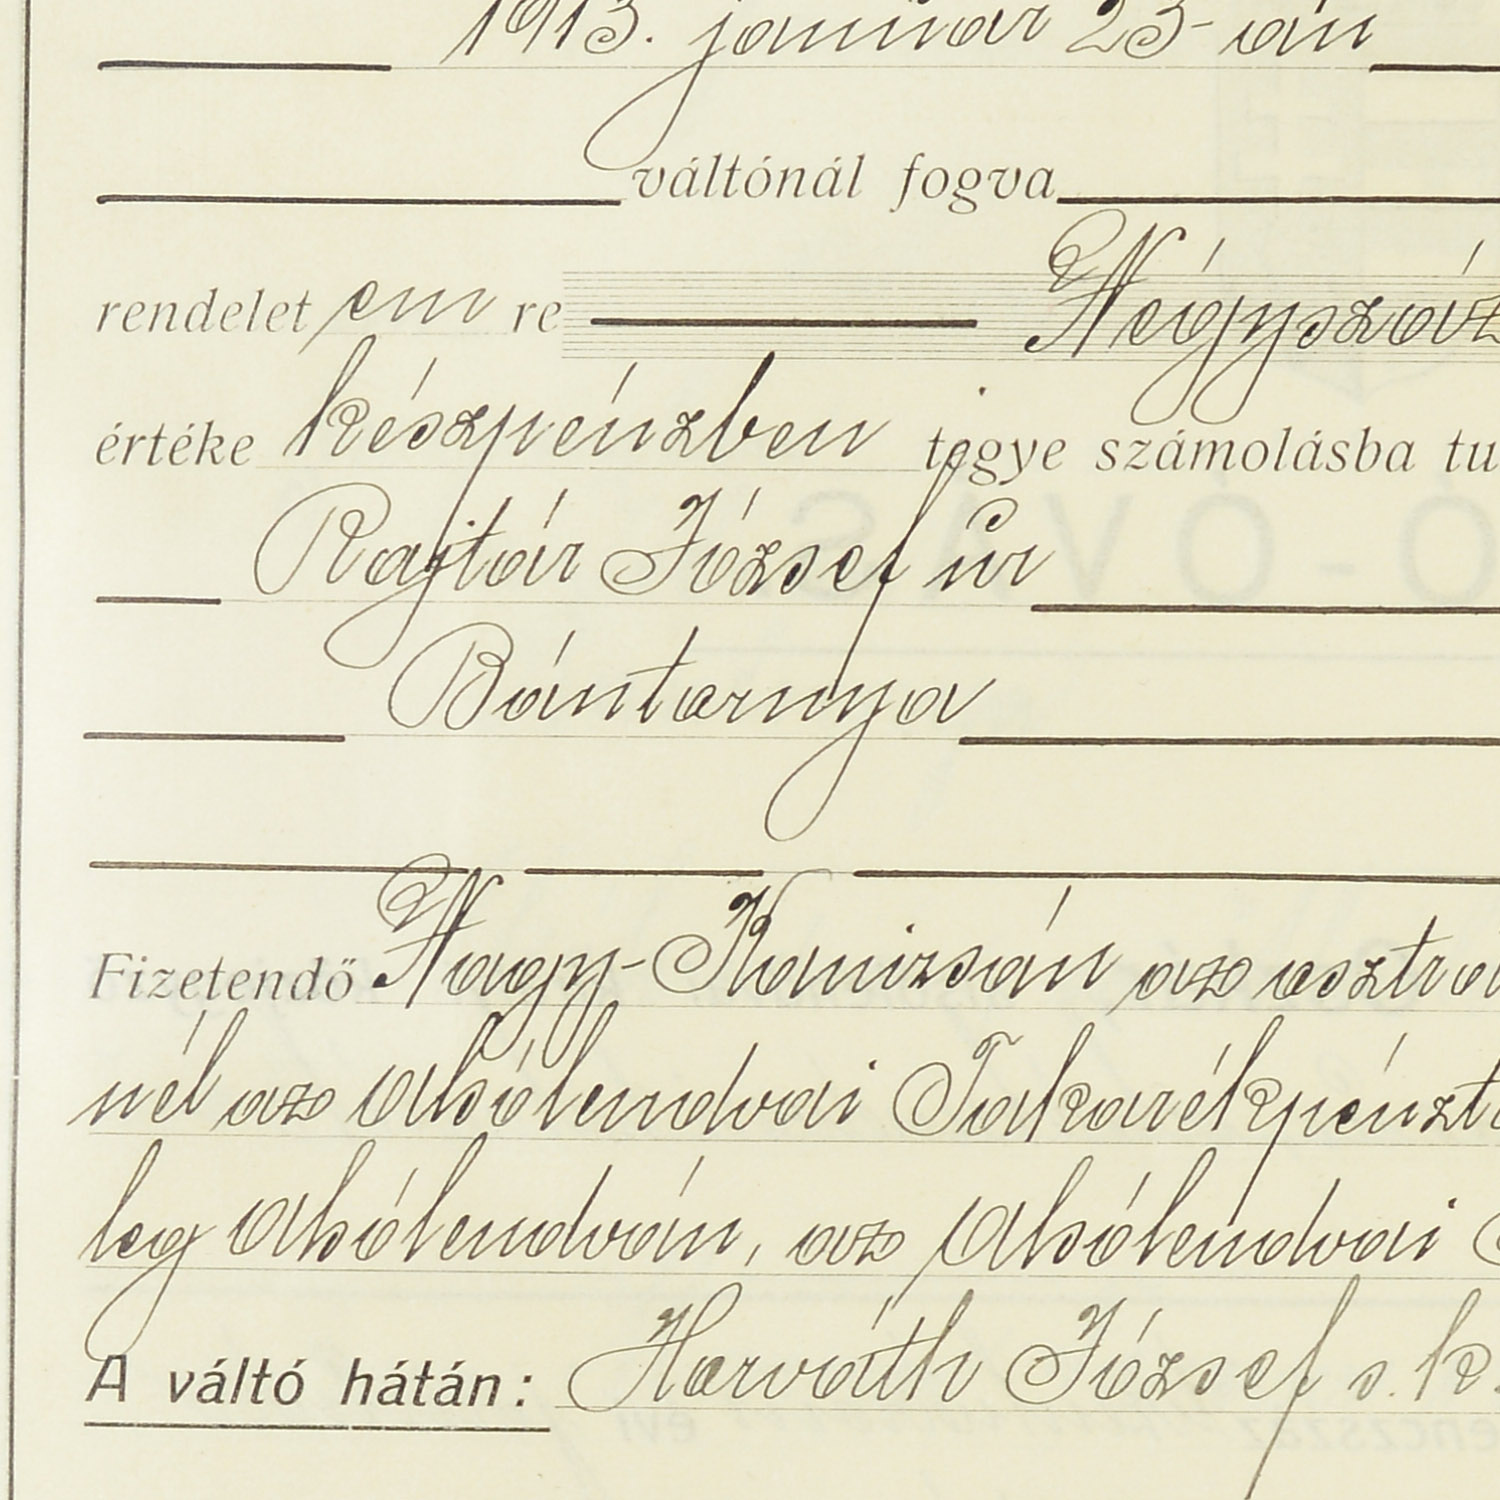 1913. január 23-án
váltónál fogva
rendeletem re Négyszáz
értéke készpénzben tegye számolásba
Rajtár József úr
Bántornya
Fizetendő Nagy-Kanizsán az
nél az Alsólendvai
leg Alsólendván, az Alsólendvai
A váltó hátán: Horváth József s. k.